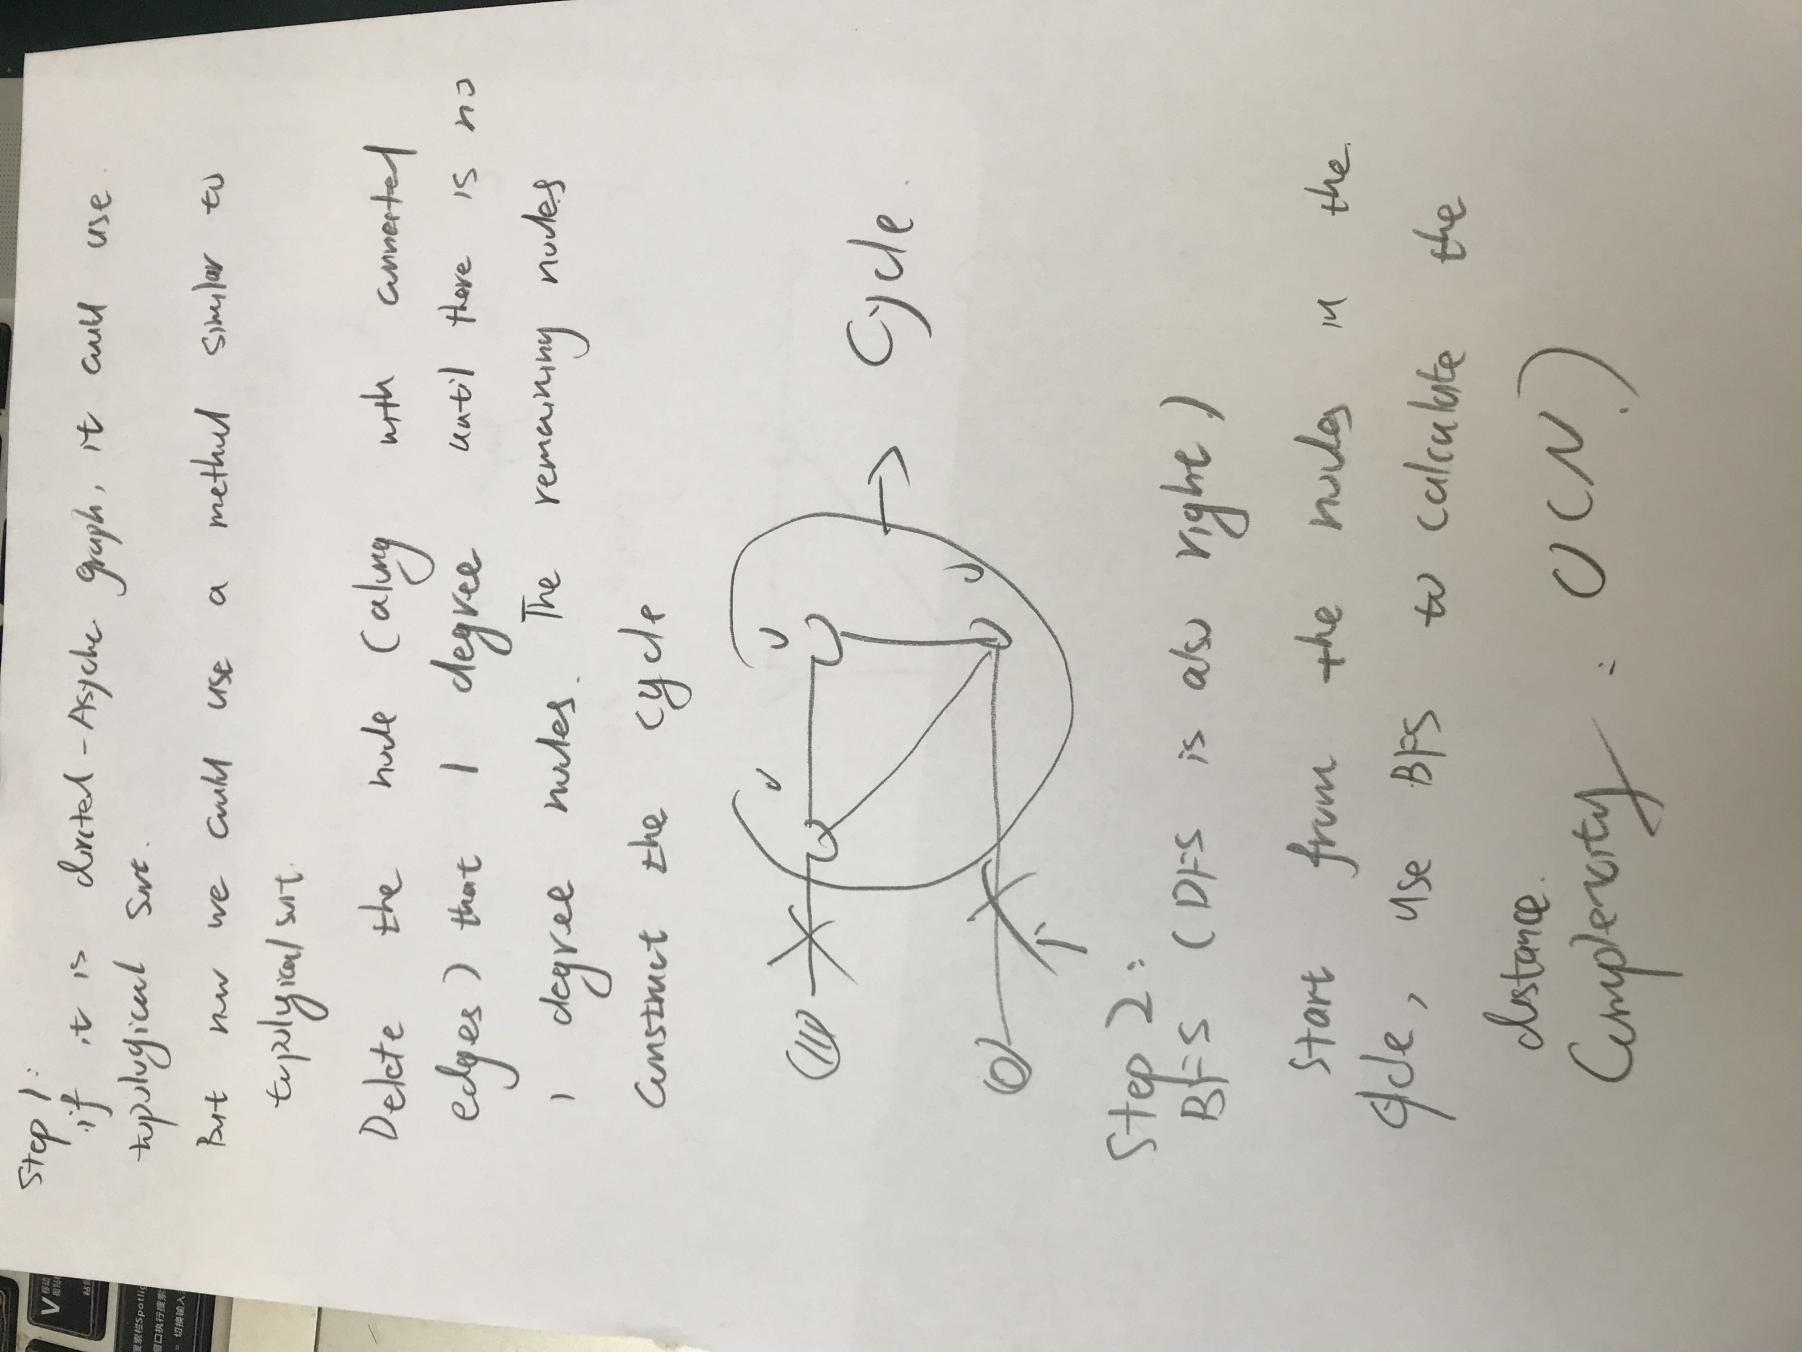 Step 1:
if it is directed-Asyclic graph, it could use
topological sort.
But now we could use a method similar to
topological sort.
Delete the node (along with connected
edges) that 1 degree until there is no
1 degree nodes. The remaining nodes
construct the cycle
Cycle.
Step 2:
BFS (DFS is also right)
Start from the nodes in the
cycle, use BFS to calculate the
distance.
Complexity: O(N)
V